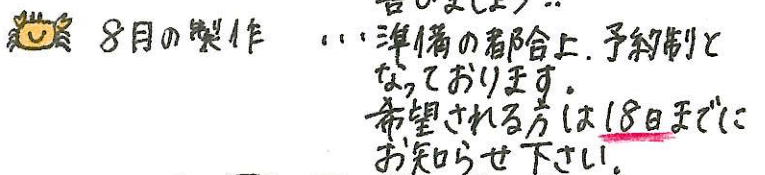 8月の製作 ・・・準備の都合上、予約制と
なっております。
希望される方は18日までに
お知らせ下さい。